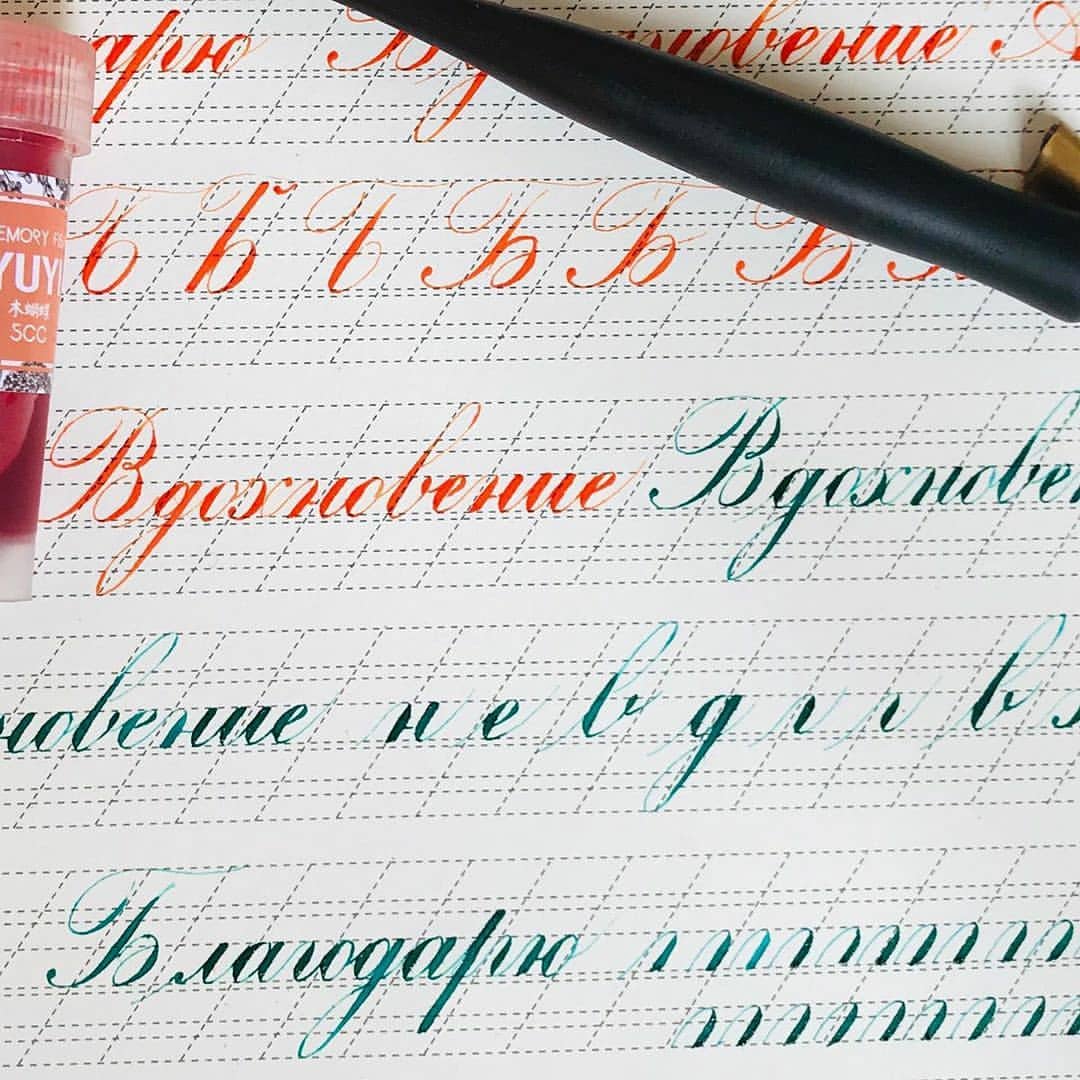 арю Вдохновение
Б Б Б Б Б Б
Вдохновение Вдохнове
новение н е в д г г в
Благодарю
YUY
木蝴蝶
5CC